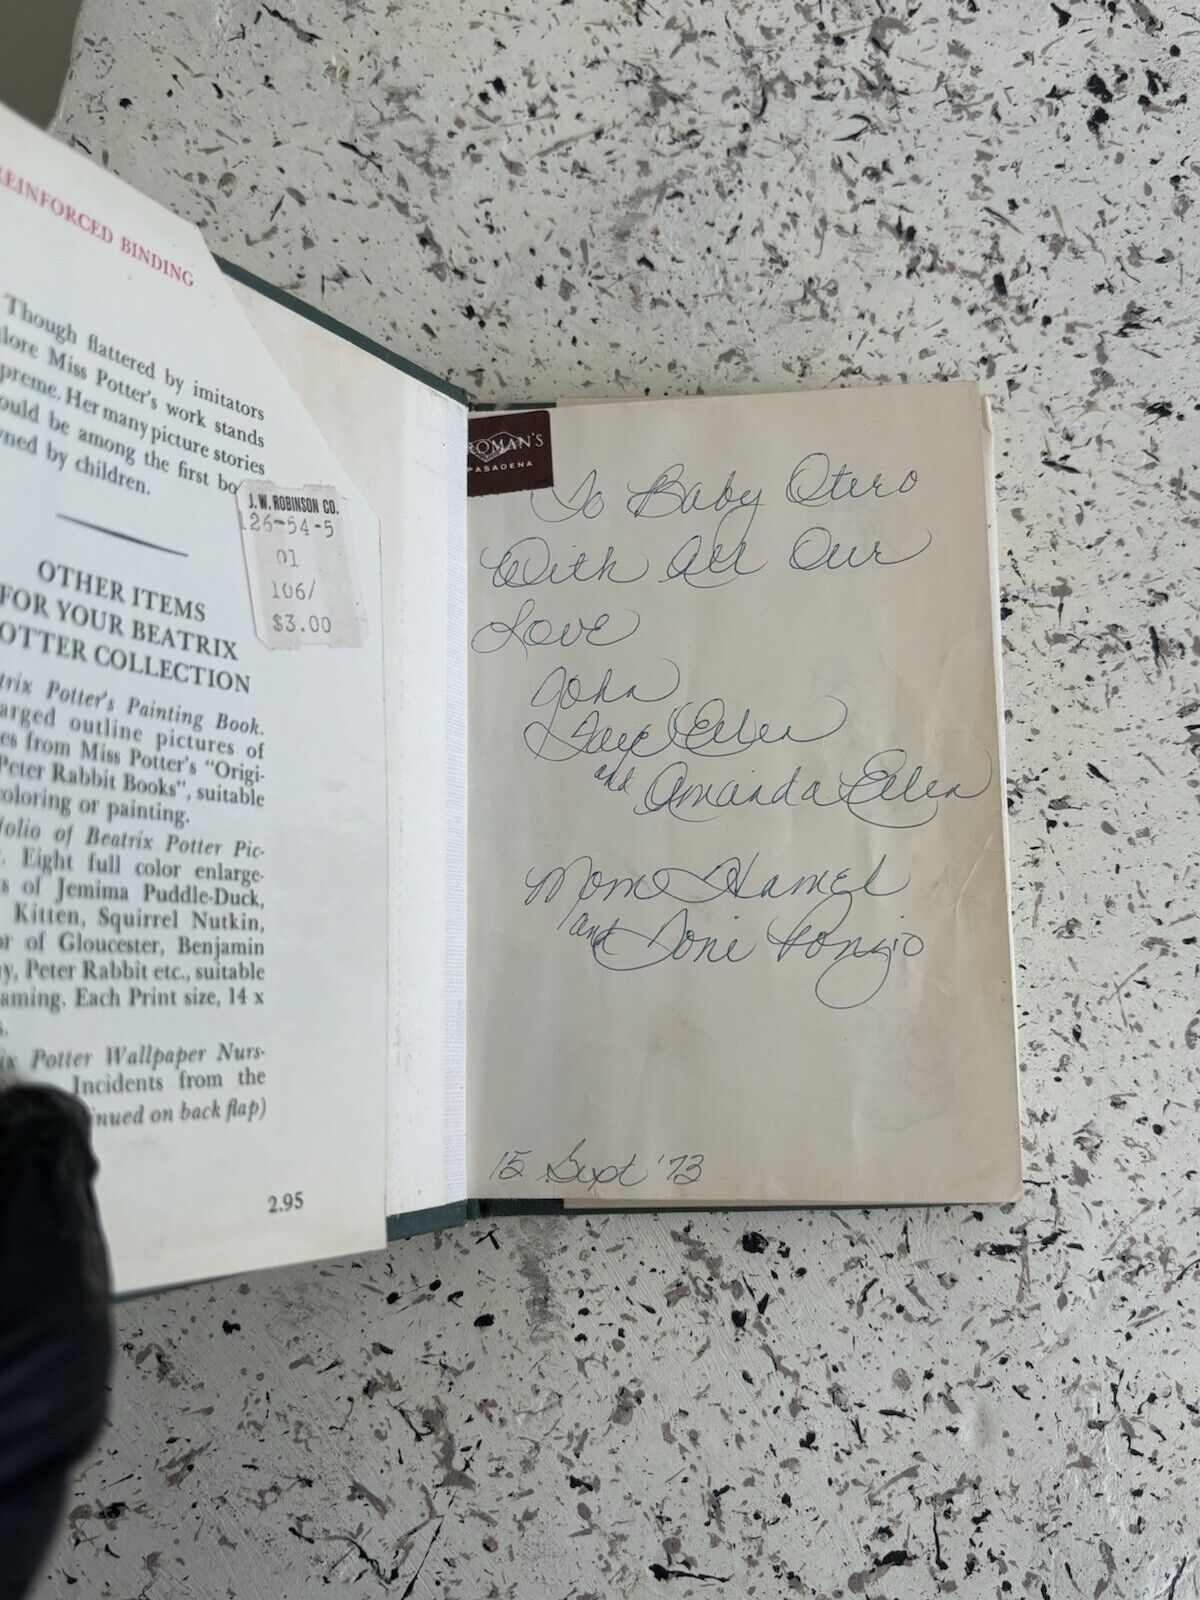 REINFORCED BINDING
Though flattered by imitators
Miss Potter's work stands
Her many picture stories
be among the first
by children.
J.W. ROBINSON CO.
126-54-5
01
106/
$3.00
OTHER ITEMS
FOR YOUR BEATRIX
OTTER COLLECTION
trix Potter's Painting Book.
arged outline pictures of
es from Miss Potter's "Origi-
Peter Rabbit Books", suitable
coloring or painting.
folio of Beatrix Potter Pic-
Eight full color enlarge-
s of Jemima Puddle-Duck,
Kitten, Squirrel Nutkin,
or of Gloucester, Benjamin
y, Peter Rabbit etc., suitable
aming. Each Print size, 14 x
ix Potter Wallpaper Nurs-
Incidents from the
inued on back flap)
2.95
ROMAN'S
PASADENA
To Baby Otero
With All Our
Love
John
Faye Ellen
and Amanda Ellen
Mom Hamel
and Toni Ponzio
15 Sept '73